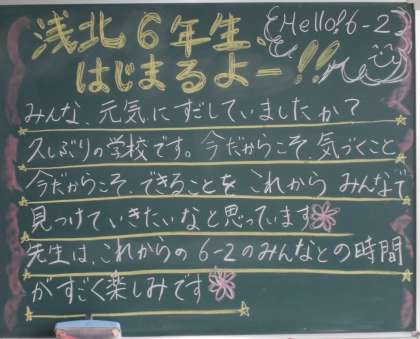 浅北6年生、
はじまるよー!!
Hello!6-2
みんな、元気にすだしていましたか?
久しぶりの学校です。今だからこそ、気づくこと
今だからこそ、できることを これから みんなで
見つけていきたいなと思っています
先生は、これからの 6-2のみんなとの時間
がすごく楽しみです